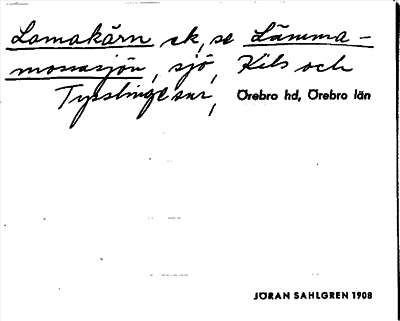 Lomakärn ek, se Lämma-
mossasjön, sjö, Kils och
Tysslinge snr, Örebro hd, Örebro län
JÖRAN SAHLGREN 1908